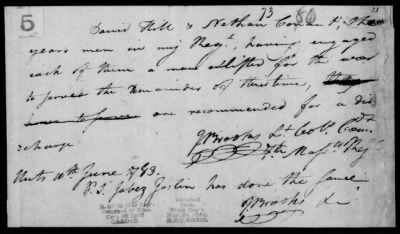 5
73 80
David Hill & Nathan Conant, Three
years men in my Regt. having engaged
each of them a man enlisted for the war
to serve the remainder of their time,
are recommended for a dis
charge
J Brooks Lt Colo. Comdt
7th Massa Regt
Huts 10th June 1783.
P.S. Jabez Joslin has done the same
J Brooks Lt
CARDED
Received
from
State Dep't.